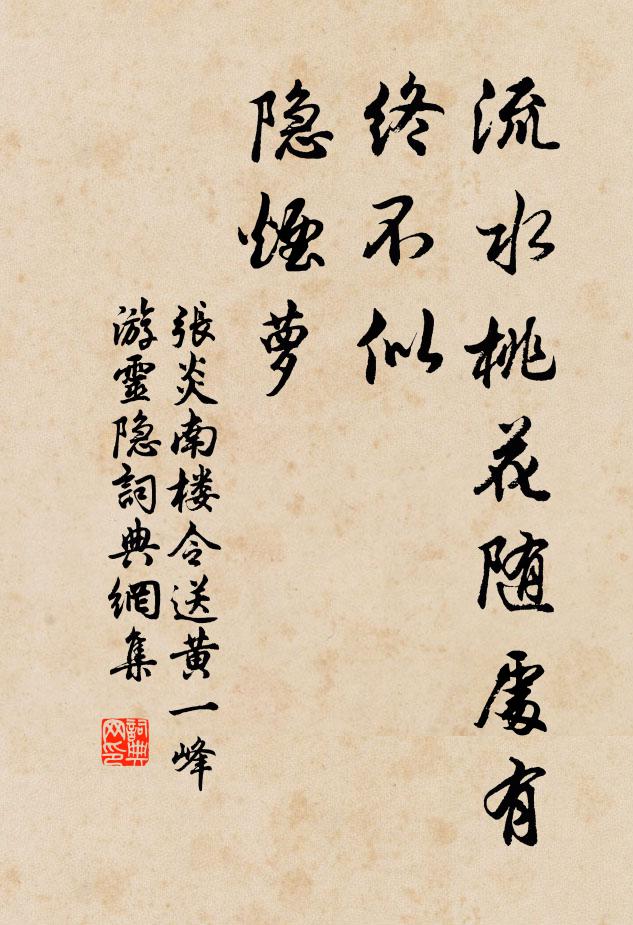 流水桃花随處有
終不似
隐煙萝
張炎南楼令送黄一峰
游靈隐詞典網集
詞典
网印